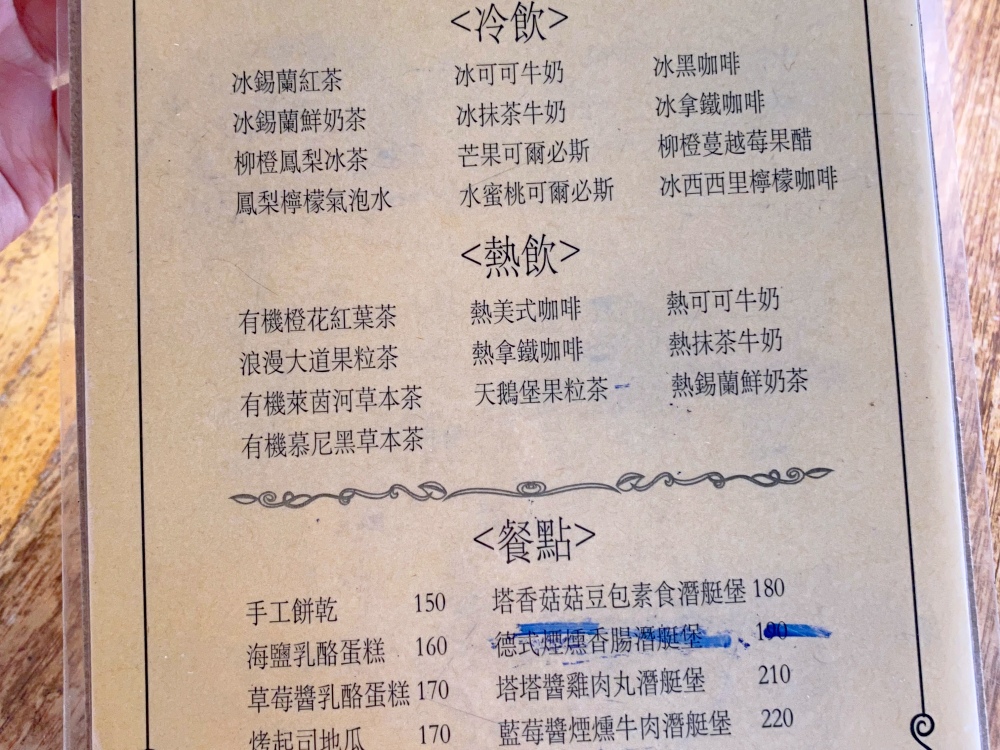 <冷飲>
冰錫蘭紅茶 冰可可牛奶 冰黑咖啡
冰錫蘭鮮奶茶 冰抹茶牛奶 冰拿鐵咖啡
柳橙鳳梨冰茶 芒果可爾必斯 柳橙蔓越莓果醋
鳳梨檸檬氣泡水 水蜜桃可爾必斯 冰西西里檸檬咖啡
<熱飲>
有機橙花紅葉茶 熱美式咖啡 熱可可牛奶
浪漫大道果粒茶 熱拿鐵咖啡 熱抹茶牛奶
有機萊茵河草本茶 天鵝堡果粒茶 熱錫蘭鮮奶茶
有機慕尼黑草本茶
<餐點>
手工餅乾 150 塔香菇菇豆包素食潛艇堡 180
海鹽乳酪蛋糕 160 德式煙燻香腸潛艇堡 190
草莓醬乳酪蛋糕 170 塔塔醬雞肉丸潛艇堡 210
烤起司地瓜 170 藍莓醬煙燻牛肉潛艇堡 220